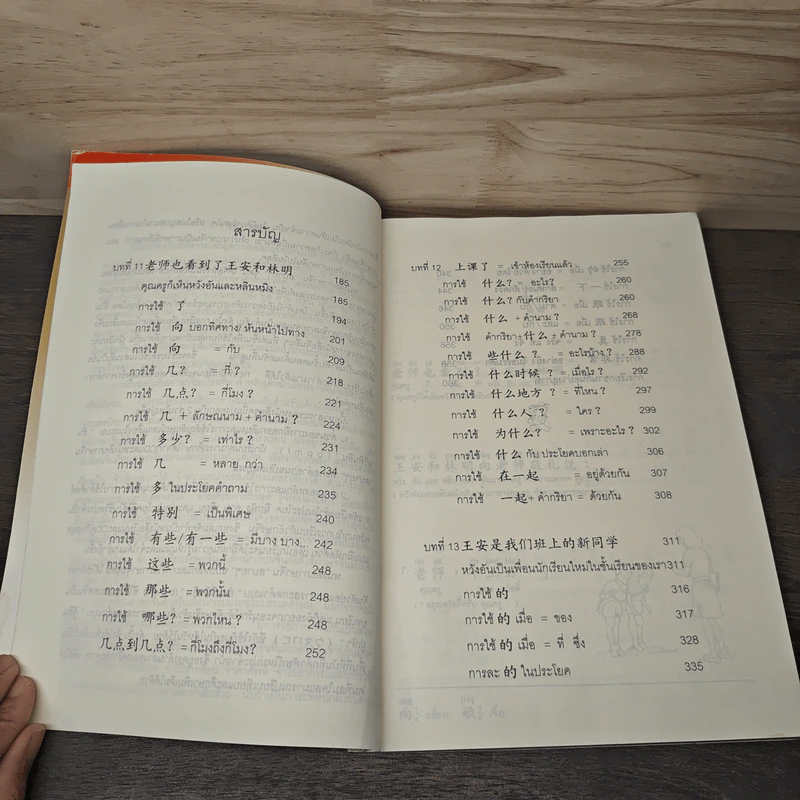 สารบัญ
บทที่ 11 老师也看到了王安和林明 185
คุณครูก็เห็นหวังอันและหลินหมิง 185
การใช้ 了 194
การใช้ 向 บอกทิศทาง/หันหน้าไปทาง 201
การใช้ 向 = กับ 209
การใช้ 几? = กี่ ? 218
การใช้ 几点? = กี่โมง ? 221
การใช้ 几 + ลักษณนาม + คำนาม ? 224
การใช้ 多少? = เท่าไร ? 231
การใช้ 几 = หลาย กว่า 234
การใช้ 多 ในประโยคคำถาม 235
การใช้ 特别 = เป็นพิเศษ 240
การใช้ 有些/有一些 = มีบาง บาง... 242
การใช้ 这些 = พวกนี้ 248
การใช้ 那些 = พวกนั้น 248
การใช้ 哪些? = พวกไหน ? 248
几点到几点? = กี่โมงถึงกี่โมง? 252
บทที่ 12 上课了 = เข้าห้องเรียนแล้ว 255
การใช้ 什么? = อะไร? 260
การใช้ 什么? กับคำกริยา 260
การใช้ 什么 + คำนาม ? 268
การใช้ คำกริยา+什么+คำนาม ? 278
การใช้ 些什么 ? = อะไรบ้าง ? 288
การใช้ 什么时候 ? = เมื่อไร ? 292
การใช้ 什么地方 ? = ที่ไหน ? 297
การใช้ 什么人 ? = ใคร ? 299
การใช้ 为什么? = เพราะอะไร ? 302
การใช้ 什么 กับ ประโยคบอกเล่า 306
การใช้ 在一起 = อยู่ด้วยกัน 307
การใช้ 一起+ คำกริยา = ด้วยกัน 308
บทที่ 13 王安是我们班上的新同学 311
หวังอันเป็นเพื่อนนักเรียนใหม่ในชั้นเรียนของเรา 311
การใช้ 的 316
การใช้ 的 เมื่อ = ของ 317
การใช้ 的 เมื่อ = ที่ ซึ่ง 328
การละ 的 ในประโยค 335